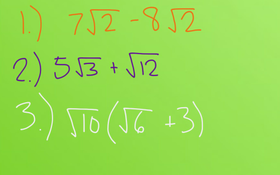 1.) 7√2 - 8√2
2.) 5√3 + √12
3.) √10(√6 + 3)